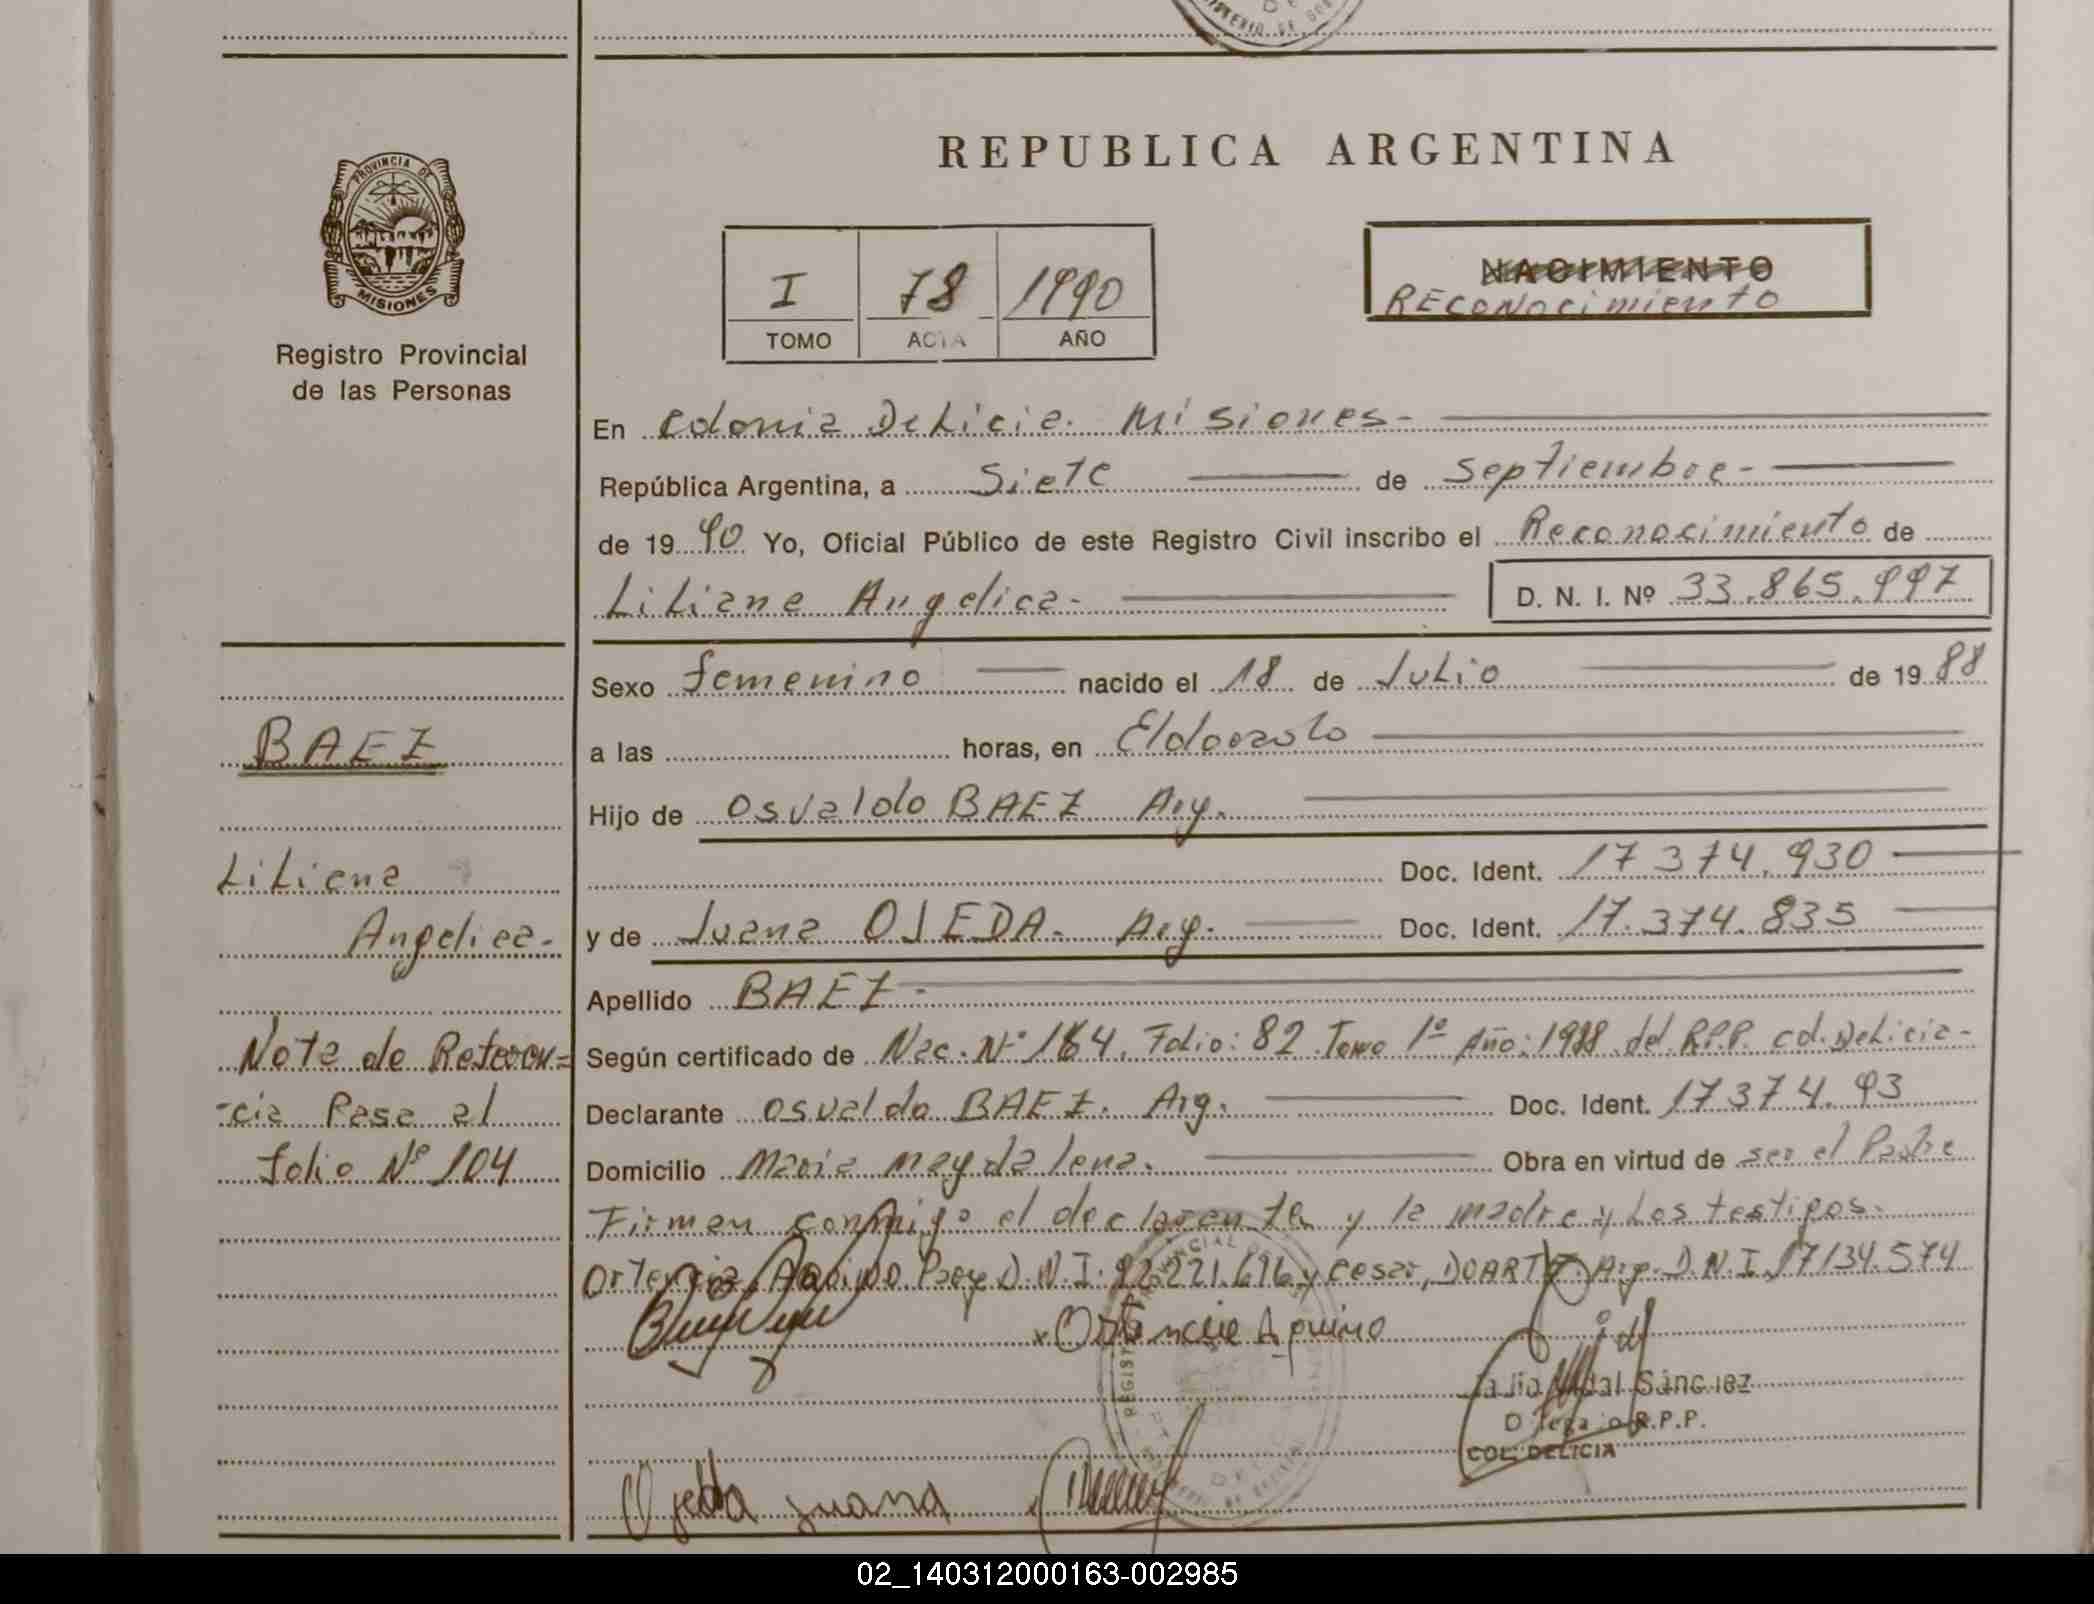 REPUBLICA ARGENTINA
PROVINCIA DE
MISIONES
Registro Provincial
de las Personas
I 78 1990
TOMO ACTA AÑO
NACIMIENTO
RECONOCIMIENTO
En Colonia Delicia. Misiones-
República Argentina, a Siete de Septiembre-
de 1990 Yo, Oficial Público de este Registro Civil inscribo el Reconocimiento de
Liliana Angelica- D. N. I. Nº 33.865.997
Sexo femenino nacido el 18 de Julio de 1988
a las horas, en Eldorado
Hijo de Osvaldo BAEZ Arg.
Doc. Ident. 17 374.930
y de Juana OJEDA. Arg. Doc. Ident. 17.374.835
Apellido BAEZ-
Según certificado de Nac. Nº 164. Folio: 82 Tomo 1º Año: 1988 del R.P.P. Col. Delicia-
Declarante Osvaldo BAEZ. Arg. Doc. Ident. 17 374.93
Domicilio Maria Magdalena. Obra en virtud de ser el Padre
Firman conmigo el declarante y la madre y Los testigos.
Ortencia Aquino Pgy. D.N.I. 92.221.616 y Cesar DUARTE Arg. D.N.I. 17134.574
x Ortencia Aquino
Vidal Sánchez
R.P.P.
COL. DELICIA
Ojeda Juana
BAEZ
Liliana
Angelica-
Nota de Referen=
-cia Pasa al
folio Nº 104
02_140312000163-002985